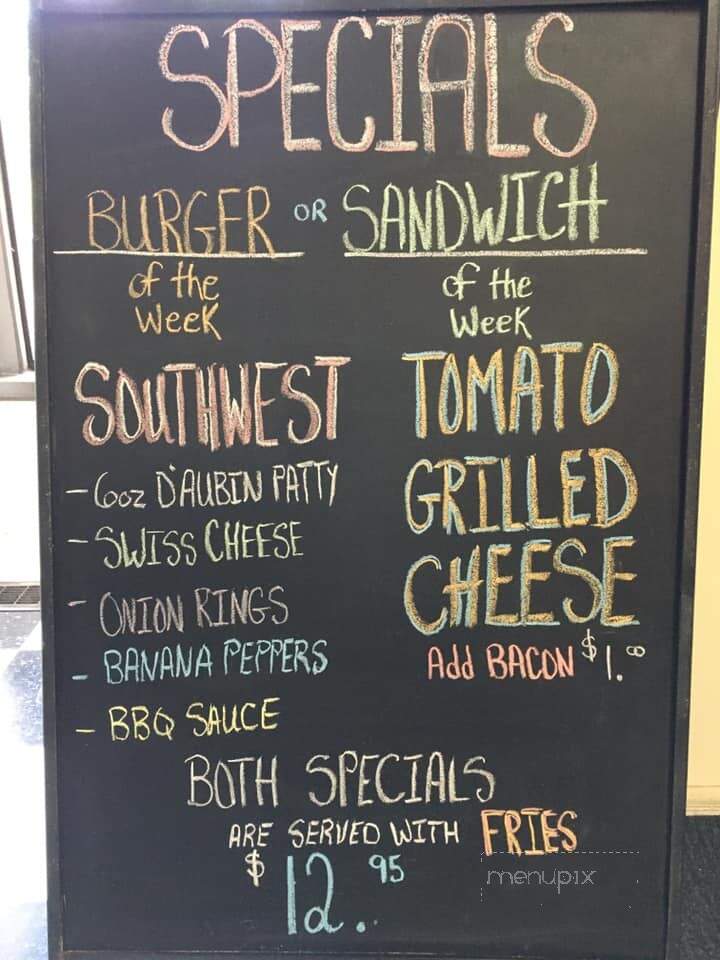 SPECIALS
BURGER OR SANDWICH
of the Week
of the Week
SOUTHWEST
- 6oz D'AUBIN PATTY
- SWISS CHEESE
- ONION RINGS
- BANANA PEPPERS
- BBQ SAUCE
TOMATO
GRILLED
CHEESE
Add BACON $1.00
BOTH SPECIALS
ARE SERVED WITH FRIES
$12.95
menupix